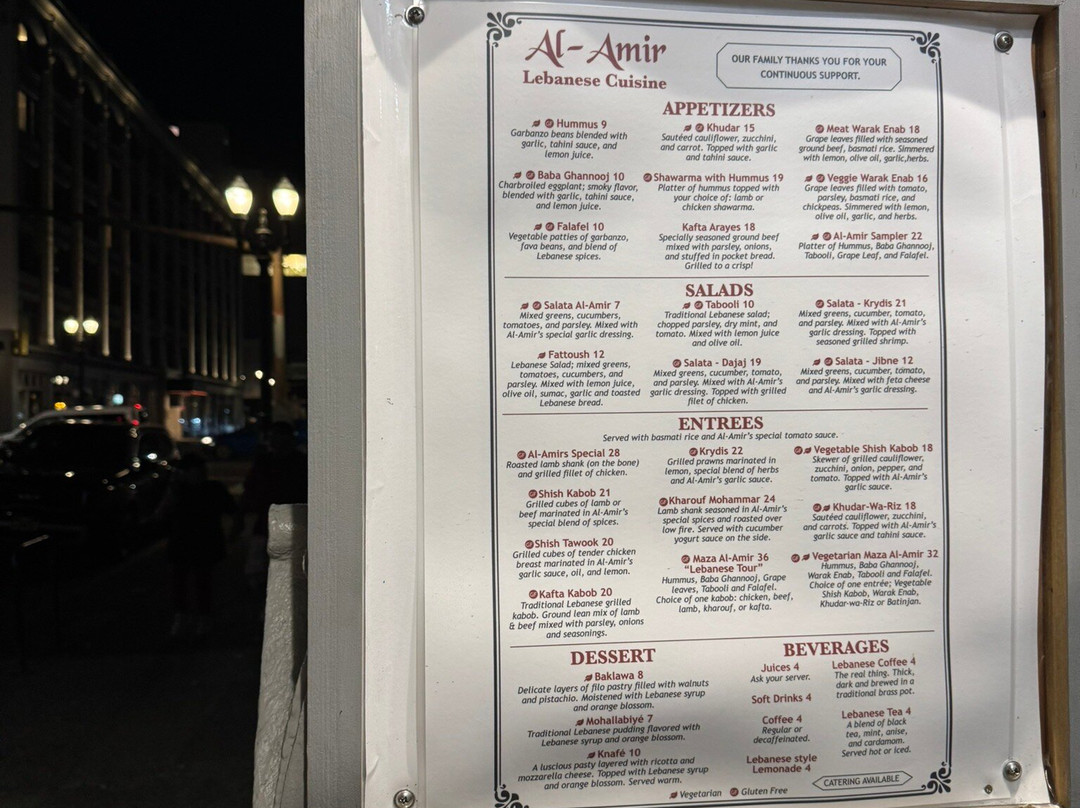 Al-Amir
Lebanese Cuisine
OUR FAMILY THANKS YOU FOR YOUR
CONTINUOUS SUPPORT.
APPETIZERS
Hummus 9
Garbanzo beans blended with
garlic, tahini sauce, and
lemon juice.
Baba Ghannooj 10
Charbroiled eggplant; smoky flavor,
blended with garlic, tahini sauce,
and lemon juice.
Falafel 10
Vegetable patties of garbanzo,
fava beans, and blend of
Lebanese spices.
Khudar 15
Sautéed cauliflower, zucchini,
and carrot. Topped with garlic
and tahini sauce.
Shawarma with Hummus 19
Platter of hummus topped with
your choice of: lamb or
chicken shawarma.
Kafta Arayes 18
Specially seasoned ground beef
mixed with parsley, onions,
and stuffed in pocket bread.
Grilled to a crisp!
Meat Warak Enab 18
Grape leaves filled with seasoned
ground beef, basmati rice. Simmered
with lemon, olive oil, garlic,herbs.
Veggie Warak Enab 16
Grape leaves filled with tomato,
parsley, basmati rice, and
chickpeas. Simmered with lemon,
olive oil, garlic, and herbs.
Al-Amir Sampler 22
Platter of Hummus, Baba Ghannooj,
Tabooli, Grape Leaf, and Falafel.
SALADS
Salata Al-Amir 7
Mixed greens, cucumbers,
tomatoes, and parsley. Mixed with
Al-Amir's special garlic dressing.
Fattoush 12
Lebanese Salad; mixed greens,
tomatoes, cucumbers, and
parsley. Mixed with lemon juice,
olive oil, sumac, garlic and toasted
Lebanese bread.
Tabooli 10
Traditional Lebanese salad;
chopped parsley, dry mint, and
tomato. Mixed with lemon juice
and olive oil.
Salata - Dajaj 19
Mixed greens, cucumber, tomato,
and parsley. Mixed with Al-Amir's
garlic dressing. Topped with grilled
filet of chicken.
Salata - Krydis 21
Mixed greens, cucumber, tomato,
and parsley. Mixed with Al-Amir's
garlic dressing. Topped with
seasoned grilled shrimp.
Salata - Jibne 12
Mixed greens, cucumber, tomato,
and parsley. Mixed with feta cheese
and Al-Amir's garlic dressing.
ENTREES
Served with basmati rice and Al-Amir's special tomato sauce.
Al-Amirs Special 28
Roasted lamb shank (on the bone)
and grilled fillet of chicken.
Shish Kabob 21
Grilled cubes of lamb or
beef marinated in Al-Amir's
special blend of spices.
Shish Tawook 20
Grilled cubes of tender chicken
breast marinated in Al-Amir's
garlic sauce, oil, and lemon.
Kafta Kabob 20
Traditional Lebanese grilled
kabob. Ground lean mix of lamb
& beef mixed with parsley, onions
and seasonings.
Krydis 22
Grilled prawns marinated in
lemon, special blend of herbs
and Al-Amir's garlic sauce.
Kharouf Mohammar 24
Lamb shank seasoned in Al-Amir's
special spices and roasted over
low fire. Served with cucumber
yogurt sauce on the side.
Maza Al-Amir 36
"Lebanese Tour"
Hummus, Baba Ghannooj, Grape
leaves, Tabooli and Falafel.
Choice of one kabob: chicken, beef,
lamb, kharouf, or kafta.
Vegetable Shish Kabob 18
Skewer of grilled cauliflower,
zucchini, onion, pepper, and
tomato. Topped with Al-Amir's
garlic sauce.
Khudar-Wa-Riz 18
Sautéed cauliflower, zucchini,
and carrots. Topped with Al-Amir's
garlic sauce and tahini sauce.
Vegetarian Maza Al-Amir 32
Hummus, Baba Ghannooj,
Warak Enab, Tabooli and Falafel.
Choice of one entrée; Vegetable
Shish Kabob, Warak Enab,
Khudar-wa-Riz or Batinjan.
DESSERT
Baklawa 8
Delicate layers of filo pastry filled with walnuts
and pistachio. Moistened with Lebanese syrup
and orange blossom.
Mohallabiyé 7
Traditional Lebanese pudding flavored with
Lebanese syrup and orange blossom.
Knafé 10
A luscious pasty layered with ricotta and
mozzarella cheese. Topped with Lebanese syrup
and orange blossom. Served warm.
BEVERAGES
Juices 4
Ask your server.
Soft Drinks 4
Coffee 4
Regular or
decaffeinated.
Lebanese style
Lemonade 4
Lebanese Coffee 4
The real thing. Thick,
dark and brewed in a
traditional brass pot.
Lebanese Tea 4
A blend of black
tea, mint, anise,
and cardamom.
Served hot or iced.
CATERING AVAILABLE
Vegetarian Gluten Free